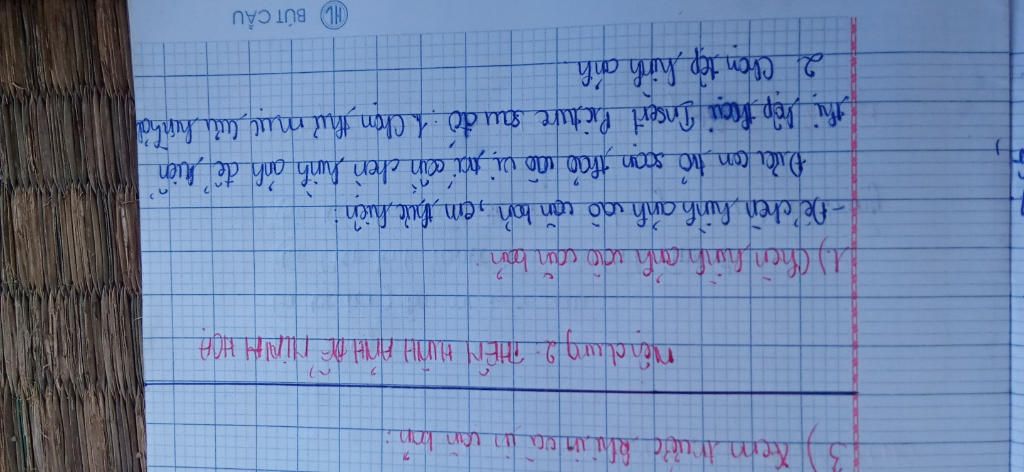 3) Xem trước khi in và in văn bản:
Nội dung 2. THÊM HÌNH ẢNH ĐỂ MINH HỌA
1) Chèn hình ảnh vào văn bản
- Để chèn hình ảnh vào văn bản, em thực hiện:
Đưa con trỏ soạn thảo vào vị trí cần chèn hình ảnh để hiển
thị hộp thoại Insert Picture sau đó: 1. Chọn thư mục lưu hình ảnh
2. Chọn tệp hình ảnh
HL BÚT CÂU